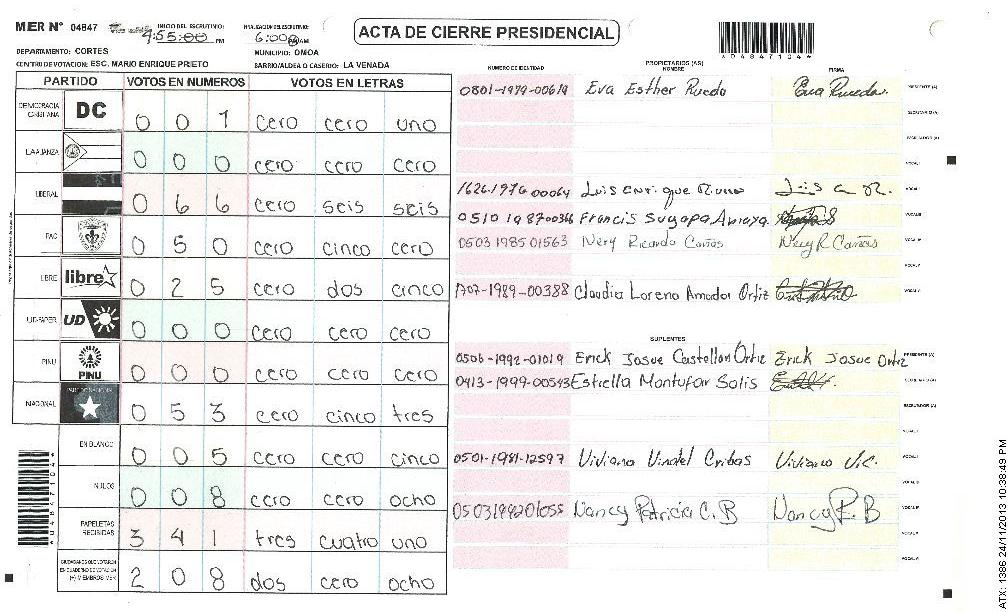 MER N° 04847
INICIO DEL ESCRUTINIO: 4:55:00 PM
FINALIZACION DEL ESCRUTINIO: 6:00 AM
ACTA DE CIERRE PRESIDENCIAL
*D4847104*
DEPARTAMENTO: CORTES
MUNICIPIO: OMOA
CENTRO DE VOTACION: ESC. MARIO ENRIQUE PRIETO
BARRIO/ALDEA O CASERIO: LA VENADA
PARTIDO VOTOS EN NUMEROS VOTOS EN LETRAS
DEMOCRACIA CRISTIANA DC 0 0 1 cero cero uno
LA AIANZA 0 0 0 cero cero cero
LIBERAL 0 6 6 cero seis seis
PAC 0 5 0 cero cinco cero
LIBRE libre 0 2 5 cero dos cinco
UD-FAPER UD 0 0 0 cero cero cero
PINU PINU 0 0 0 cero cero cero
NACIONAL 0 5 3 cero cinco tres
EN BLANCO 0 0 5 cero cero cinco
NULOS 0 0 8 cero cero ocho
PAPELETAS RECIBIDAS 3 4 1 tres cuatro uno
CIUDADANOS QUE VOTARON EN CUADERNO DE VOTACION (+) MIEMBROS MER 2 0 8 dos cero ocho
NUMERO DE IDENTIDAD
PROPIETARIOS (AS)
NOMBRE
FIRMA
0801-1979-00619 Eva Esther Rueda Eva Rueda PRESIDENTE (A)
SECRETARIO (A)
ESCRUTADOR (A)
VOCAL I
1626-1976 00064 Luis Enrique
0510 198700366 Francis Suyapa Amaya
0503 1985 01563 Nery Ricardo Cañas Nery R Cañas
1707-1989-00388 Claudia Lorena Amador Ortiz
SUPLENTES
0506-1992-01019 Erick Josue Castellon Ortiz Erick Josue Ortiz PRESIDENTE (A)
0413-1999-00543 Estrella Montufar Solis SECRETARIO (A)
ESCRUTADOR (A)
VOCAL I
0501-1981-12597 Viviana V.C.
0503199201055 Nancy Patricia C. B Nancy P. B
ATX: 1386 24/11/2013 10:38:49 PM